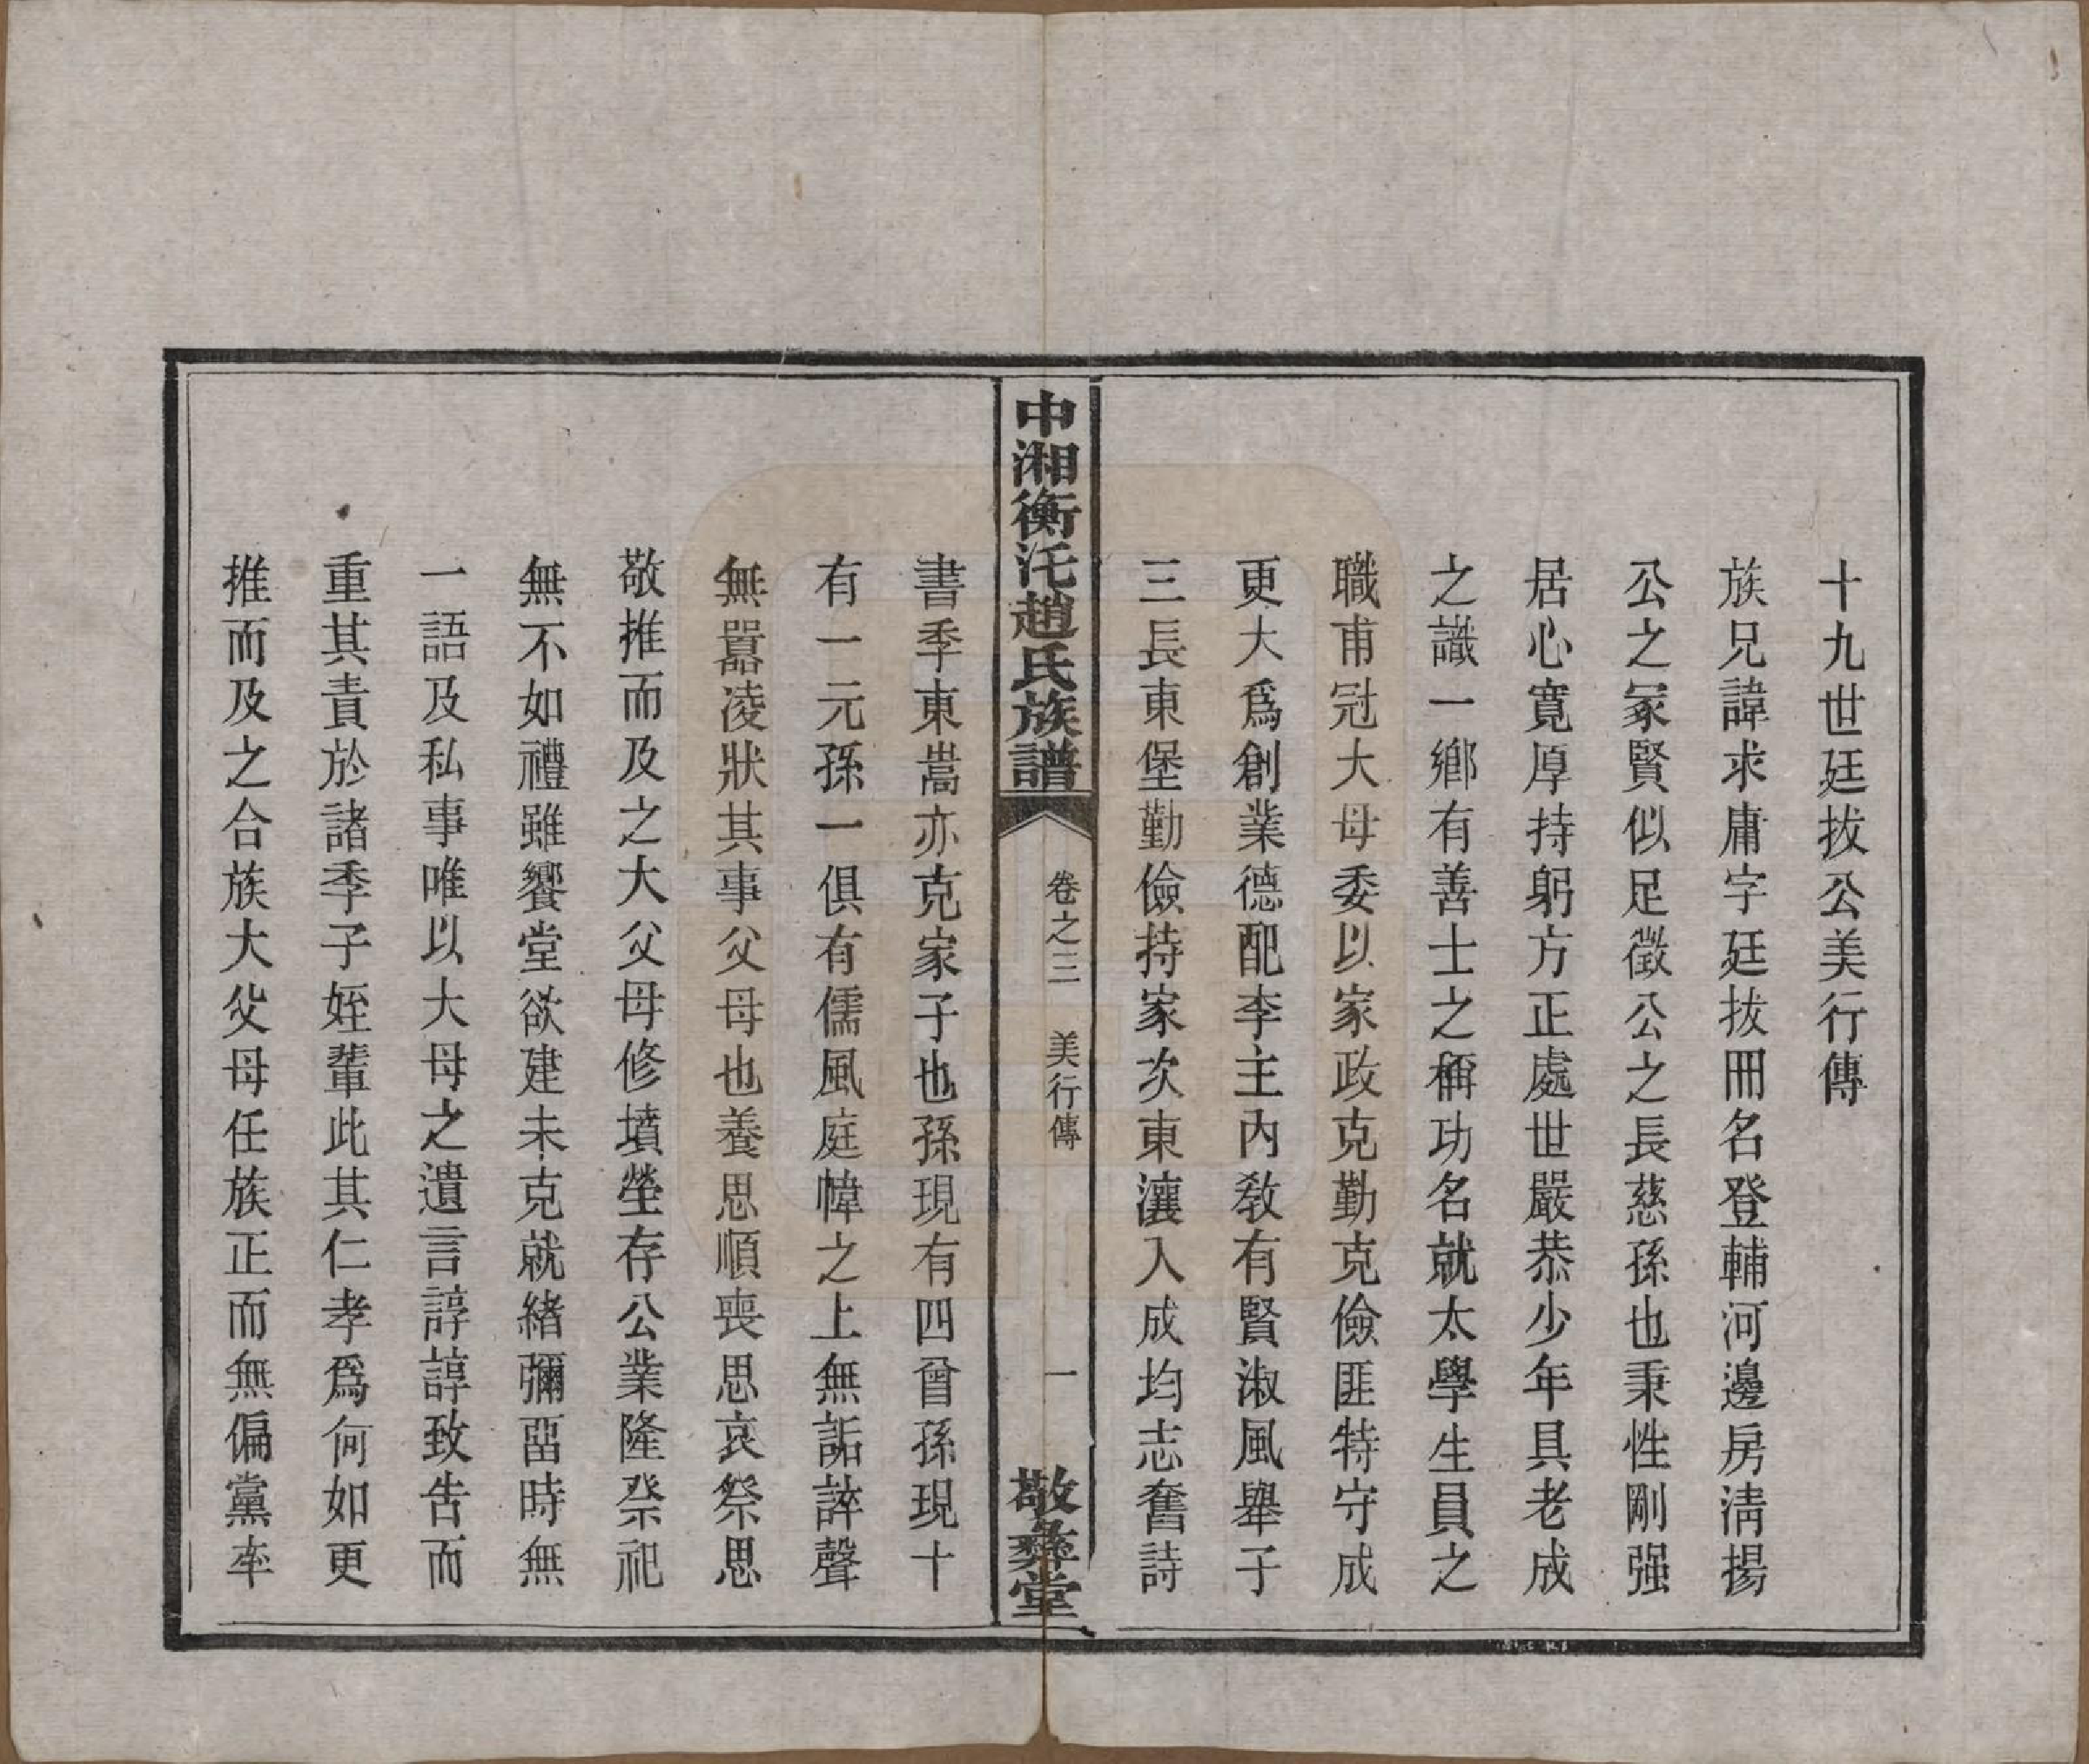 十九世廷拔公美行傳
族兄諱求庸字廷拔冊名登輔河邊房淸揚
公之冢賢似足徵公之長慈孫也秉性剛强
居心寬厚持躬方正處世嚴恭少年具老成
之識一鄕有善士之稱功名就太學生員之
職甫冠大母委以家政克勤克儉匪特守成
更大爲創業德配李主內教有賢淑風舉子
三長東堡勤儉持家次東瀼入成均志奮詩
中湘衡汑趙氏族譜
卷之三 美行傳
一
敬彝堂
書季東嵩亦克家子也孫現有四曾孫現十
有一元孫一俱有儒風庭幃之上無詬誶聲
無囂凌狀其事父母也養思順喪思哀祭思
敬推而及之大父母修墳塋存公業隆祭祀
無不如禮雖饗堂欲建未克就緒彌畱時無
一語及私事唯以大母之遺言諄諄致告而
重其責於諸季子姪輩此其仁孝爲何如更
推而及之合族大父母任族正而無偏黨率